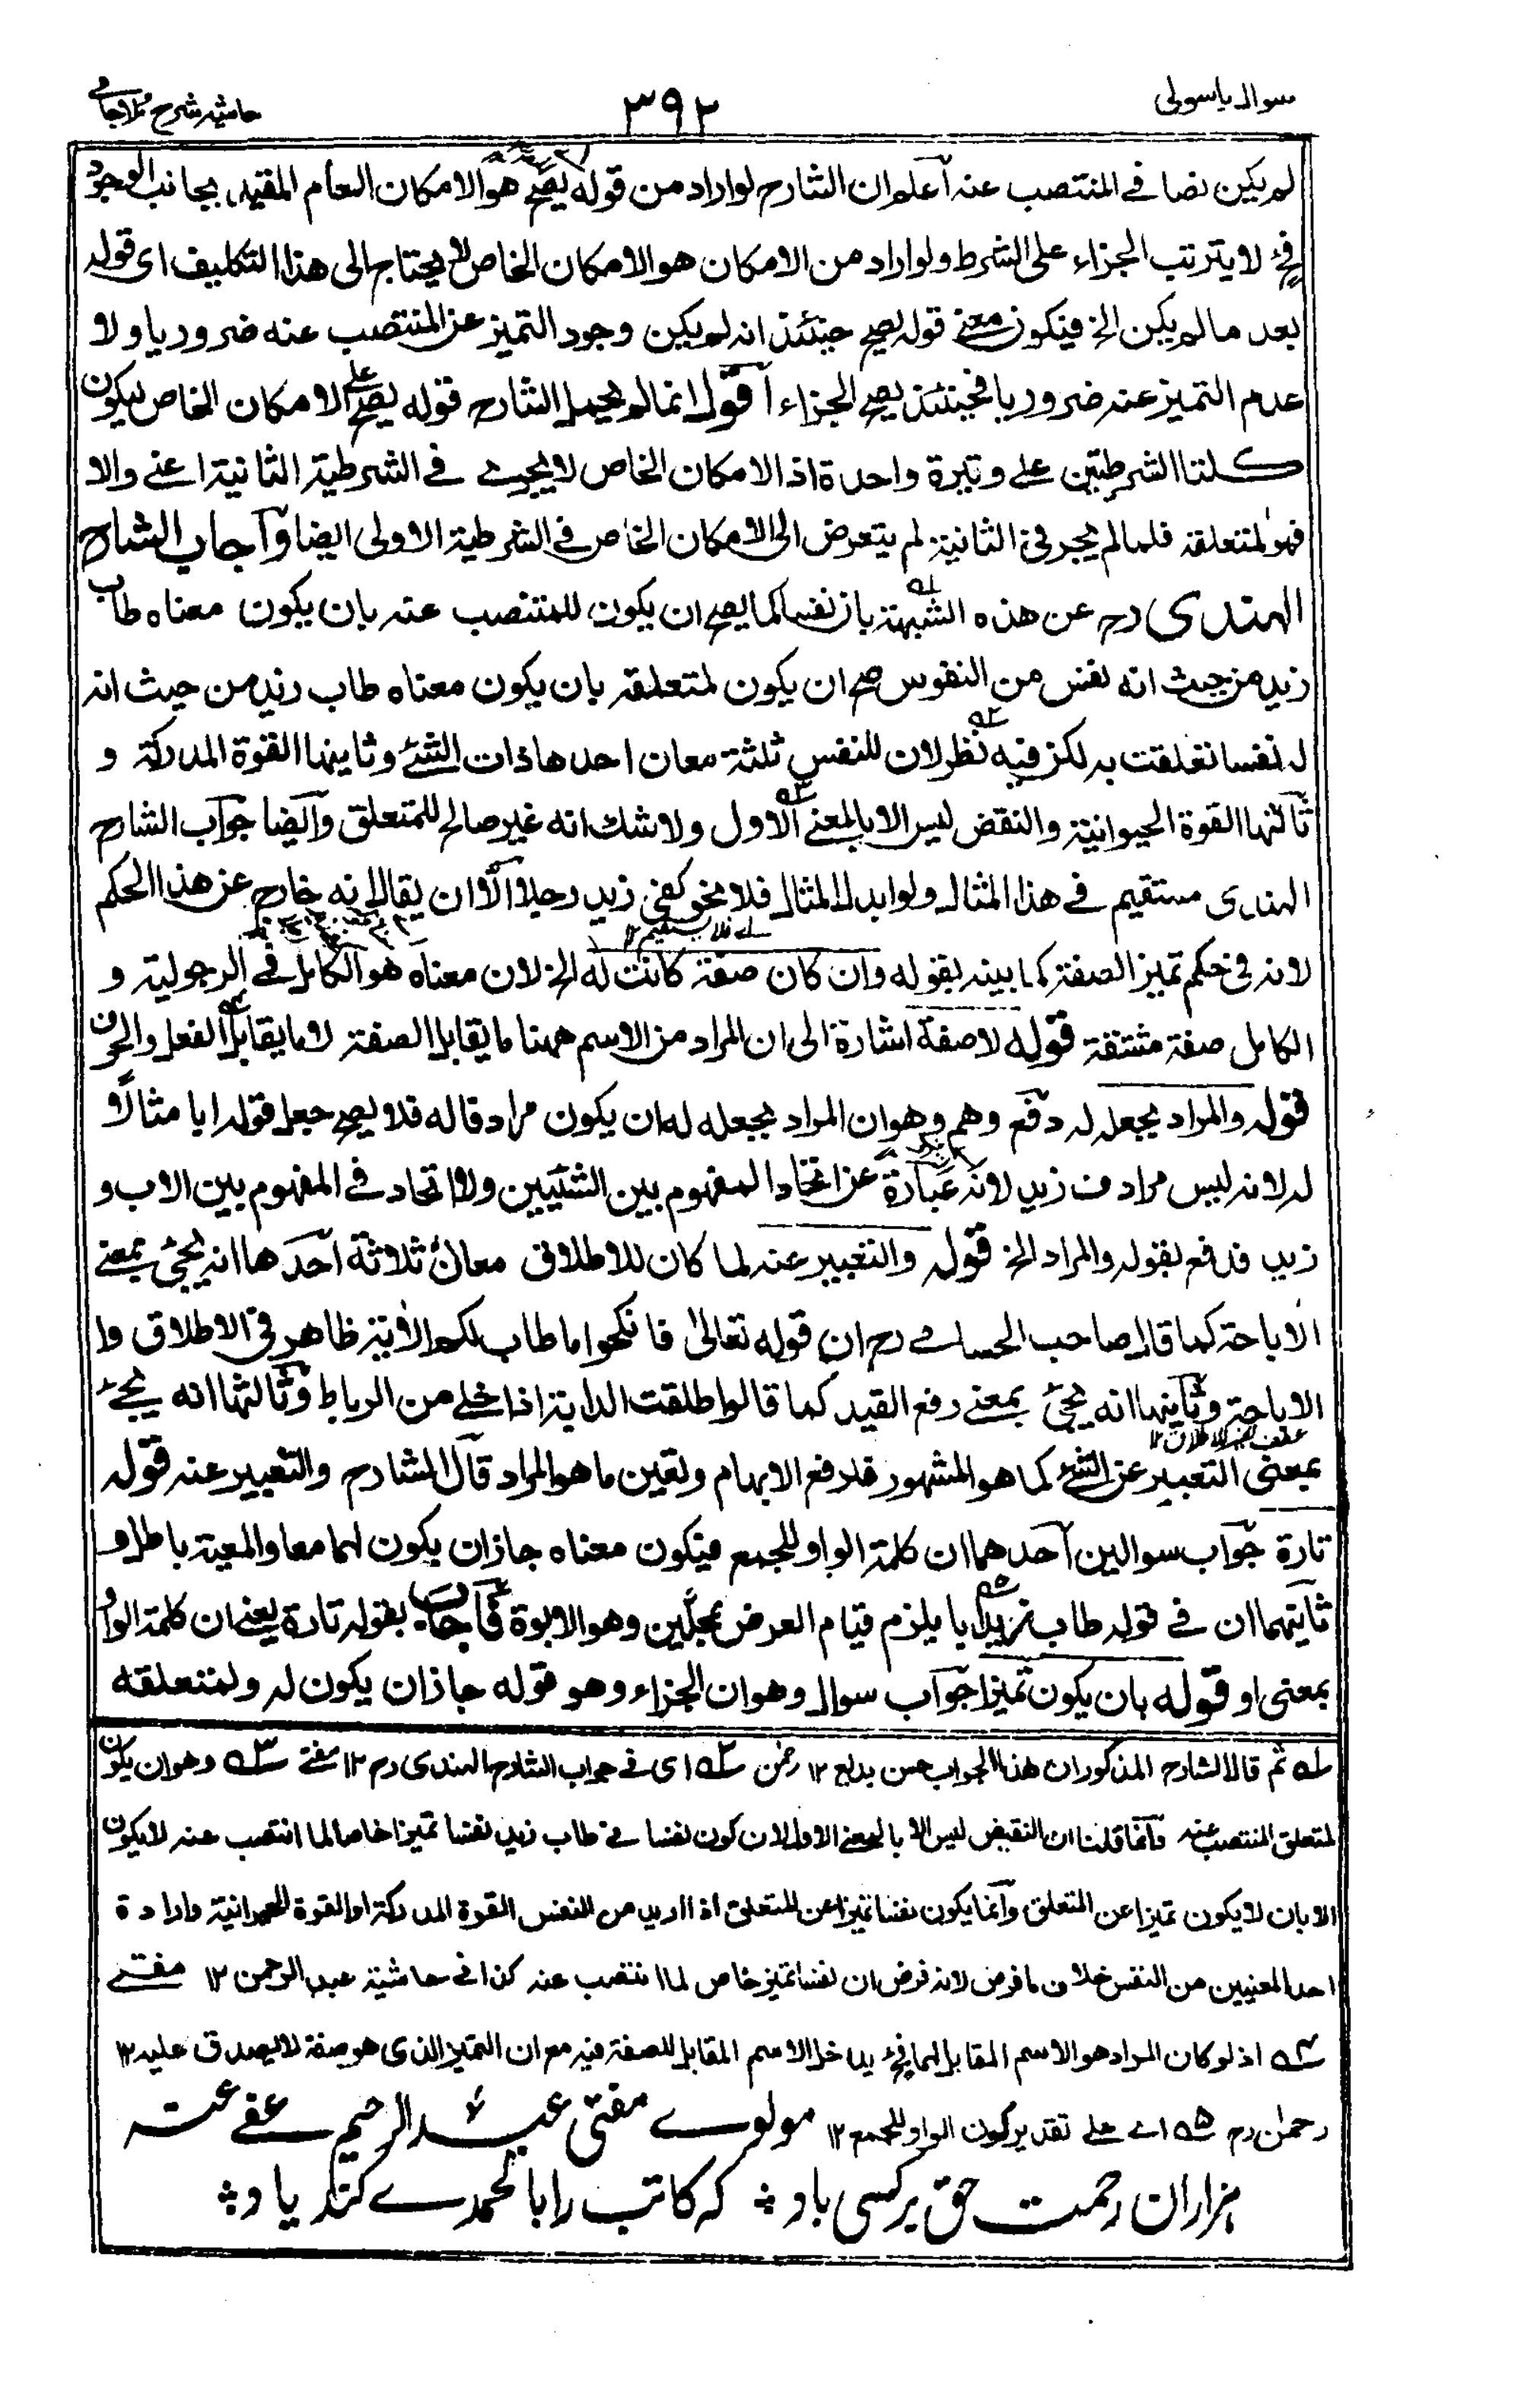 سوال باسولی
۳۹۲
حاشیه شرح ملاجامی
لم یکن نصا فی المنتصب عنه اعلم ان الشارح لو اراد من قوله یصح هو الامکان العام المقید بجانب الوجود
فح لا یترتب الجزاء علی الشرط ولو اراد من الامکان هو الامکان الخاص لا یحتاج الی هذا التکلیف ای قوله
بعد ما لم یکن الخ فیکون معنی قوله یصح حینئذ انه لم یکن وجود التمیز عن المنتصب عنه ضروریا ولا
عدم التمیز عنه ضروریا فحینئذ یصح الجزاء اقول انما لم یحمل الشارح قوله یصح علی الامکان الخاص لیکون
کلتا الشرطیتین علی وتیرة واحدة اذ الامکان الخاص لا یجری فی الشرطیة الثانیة اعنی والا
فهو لمتعلقه فلما لم یجر فی الثانیة لم یتعرض الی الامکان الخاص فی الشرطیة الاولی ایضا واجاب الشارح
الهندی رح عن هذه الشبهة بان نفسا کما یصح ان یکون للمنتصب عنه بان یکون معناه طاب
زید من حیث انه نفس من النفوس صح ان یکون لمتعلقه بان یکون معناه طاب زید من حیث انه
له نفسا تعلقت به لکن فیه نظر لان للنفس ثلثة معان احدها ذات الشئ وثانیها القوة المدرکة و
ثالثها القوة الحیوانیة والنقض لیس الا بالمعنی الاول ولا شک انه غیر صالح للمتعلق وایضا جواب الشارح
الهندی مستقیم فی هذا المثال ولو ابدل المثال فلا نحو کفی زید رجلا الا ان یقال انه خارج عن هذا الحکم
ای فلا یستقیم ۱۲
لانه فی حکم تمیز الصفة کما بینه بقوله وان کان صفة کانت له الخ لان معناه هو الکامل فی الرجولیة و
الکامل صفة مشتقة قوله لا صفة اشارة الی ان المراد من الاسم ههنا ما یقابل الصفة لا ما یقابل الفعل والحرف
قوله والمراد بجعله له دفع وهم وهو ان المراد بجعله له ان یکون مرادفا له فلا یصح جعل قوله ابا مثالا
له لانه لیس مرادف زید لانه عبارة عن اتحاد المفهوم بین الشیئین ولا اتحاد فی المفهوم بین الاب و
زید فدفع بقوله والمراد الخ قوله والتعبیر عنه لما کان للاطلاق معان ثلاثة احدها انه یجئ بمعنی
الاباحة کما قال صاحب الحسامی رح ان قوله تعالی فانکحوا ما طاب لکم الایة ظاهر فی الاطلاق وا
الاباحة وثانیها انه یجئ بمعنی رفع القید کما قالوا طلقت الدابة اذا خلی من الرباط وثالثها انه یجئ
عطف تفسیر الاطلاق ۱۲
بمعنی التعبیر عن الشئ کما هو المشهور فلدفع الابهام وتعین ما هو المراد قال الشارح والتعبیر عنه قوله
تارة جواب سوالین احدهما ان کلمة الواو للجمع فیکون معناه جاز ان یکون لهما معا والمعیة باطل و
ثانیتهما ان فی قوله طاب زید ابا یلزم قیام العرض بمحلین وهو الابوة فاجاب بقوله تارة یعنی ان کلمة الواو
بمعنی او قوله بان یکون تمیزا جواب سوال وهو ان الجزاء وهو قوله جاز ان یکون له ولمتعلقه
۱ ثم قال الشارح المذکور ان هذا الجواب حسن بدیع ۱۲ رحمن ۲ ای فی جواب الشارح الهندی رح ۱۲ مفتی ۳ وهو ان یکون
لمتعلق المنتصب عنه وانما قلنا ان النقیض لیس الا بالمعنی الاول لان کون نفسا فی طاب زید نفسا تمیزا خاصا لما انتصب عنه لا یکون
الا بان لا یکون تمیزا عن المتعلق وانما یکون نفسا تمیزا عن المتعلق اذا ارید من النفس القوة المدرکة او القوة الحیوانیة وارادة
احد المعنیین من النفس خلاف ما فرض لانه فرض ان نفسا تمیز خاص لما انتصب عنه کذا فی حاشیة عبد الرحمن ۱۲ مفتی
۴ اذ لو کان المراد هو الاسم المقابل لهما فح یداخل الاسم المقابل للصفة فیه مع ان التمیز الذی هو صفة لا یصدق علیه ۱۲
رحمن رح ۵ ای علی تقدیر کون الواو للجمع ۱۲ مولوی مفتی عبد الرحیم عفی عنه
هزاران رحمت حق بر کسی باد ؞ که کاتب را بالحمدے کند یاد ؞